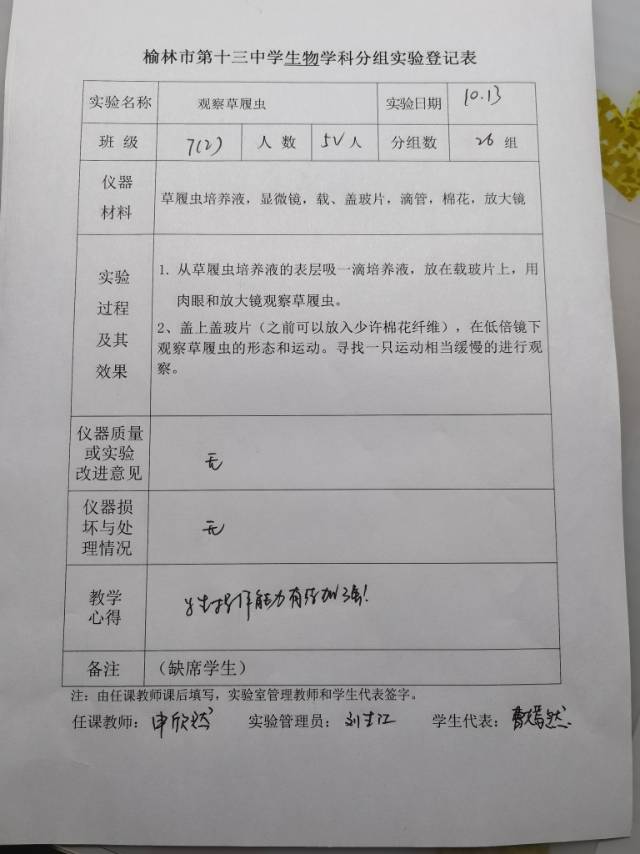 榆林市第十三中学生物学科分组实验登记表
实验名称 观察草履虫 实验日期 10.13
班 级 7(2) 人 数 人 分组数 26 组
仪器
材料
草履虫培养液，显微镜，载、盖玻片，滴管，棉花，放大镜
实验
过程
及其
效果
1. 从草履虫培养液的表层吸一滴培养液，放在载玻片上，用
肉眼和放大镜观察草履虫。
2、盖上盖玻片（之前可以放入少许棉花纤维），在低倍镜下
观察草履虫的形态和运动。寻找一只运动相当缓慢的进行观
察。
仪器质量
或实验
改进意见
无
仪器损
坏与处
理情况
无
教学
心得
学生操作能力有待加强！
备注 （缺席学生）
注：由任课教师课后填写，实验室管理教师和学生代表签字。
任课教师：申欣然 实验管理员： 学生代表：